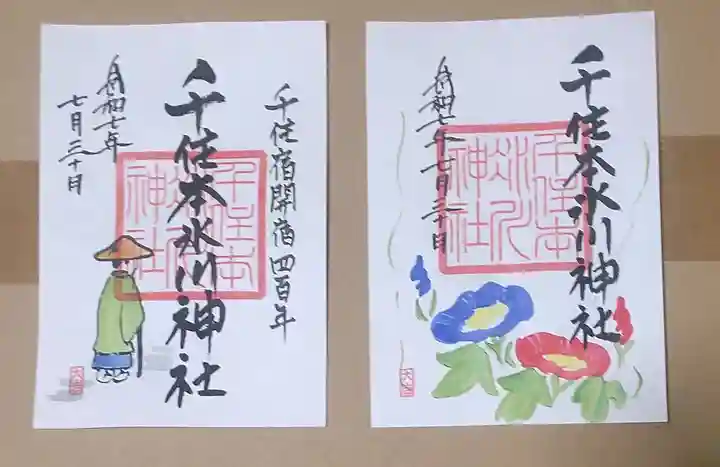 千住宿開宿四百年
千住本氷川神社
令和七年
七月三十日
千住本氷川神社
千住本氷川神社
令和七年七月三十日
千住本氷川神社